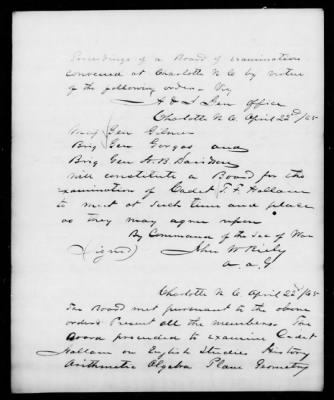 Proceedings of a Board of examination
convened at Charlotte N C by virtue
of the following order. Viz
A & I Gen Office
Charlotte N C April 22d /65
Maj Gen Gilmer
Brig Gen Gorgas and
Brig Gen
will constitute a Board for the
examination of Cadet F. F. Hallam
to meet at such time and place
as they may agree upon
By Command of the Sec of War
(signed) Jno W Riely
A. A. G
Charlotte N C April 22 /65
The Board met pursuant to the above
order Present all the members. The
Board proceeded to examine Cadet
Hallam on English Studies History
Arithmetic Algebra Plane Geometry